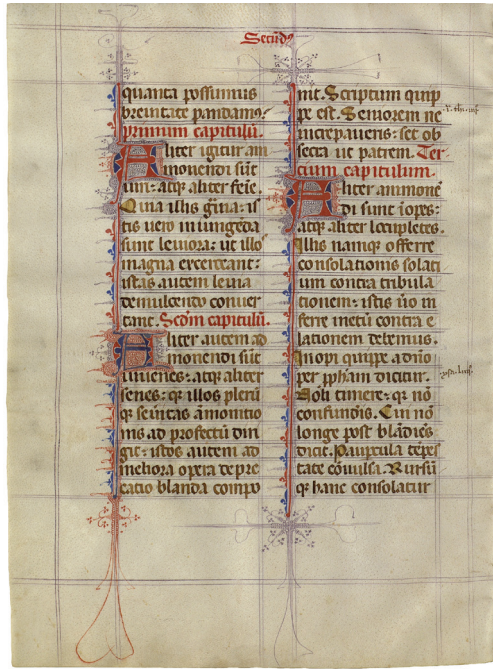 Secūdꝰ
quanta possumus
breuitate pandamꝰ.
primum capitulū.
Aliter igitur am
monendi sūt
uiri: atqꝫ aliter feīe.
Quia illis gͣuia: is
tis uero iniungēda
sunt leuiora: ut illos
magna exerceant:
istas autem leuia
demulcendo conuer
tant. Scdm capitulū.
Aliter autem ad
monendi sūt
iuuenes: atqꝫ aliter
senes: qꝫ illos plerū
qꝫ seūitas āmonitio
nis ad profectū diri
git: istos autem ad
meliora opera depre
catio blanda compo
nit. Scriptum quip
pe est. Seniorem ne
increpaueris: set ob
secra ut patrem. Ter
cium capitulum.
Aliter ammonē
di sunt īopes:
atqꝫ aliter locupletes.
Illis namqꝫ offerre
consolationis solati
um contra tribula
tionem: istis ūo in
ferre metū contra e
lationem debemus.
Inopi quippe a dn̄o
per ꝓph̄am dicitur.
Noli timere: qꝫ nō
confundēis. Cui nō
longe post blādiēs
dicit. Paupercula tēpes
tate cōuulsa. Rursū
qꝫ hanc consolatur